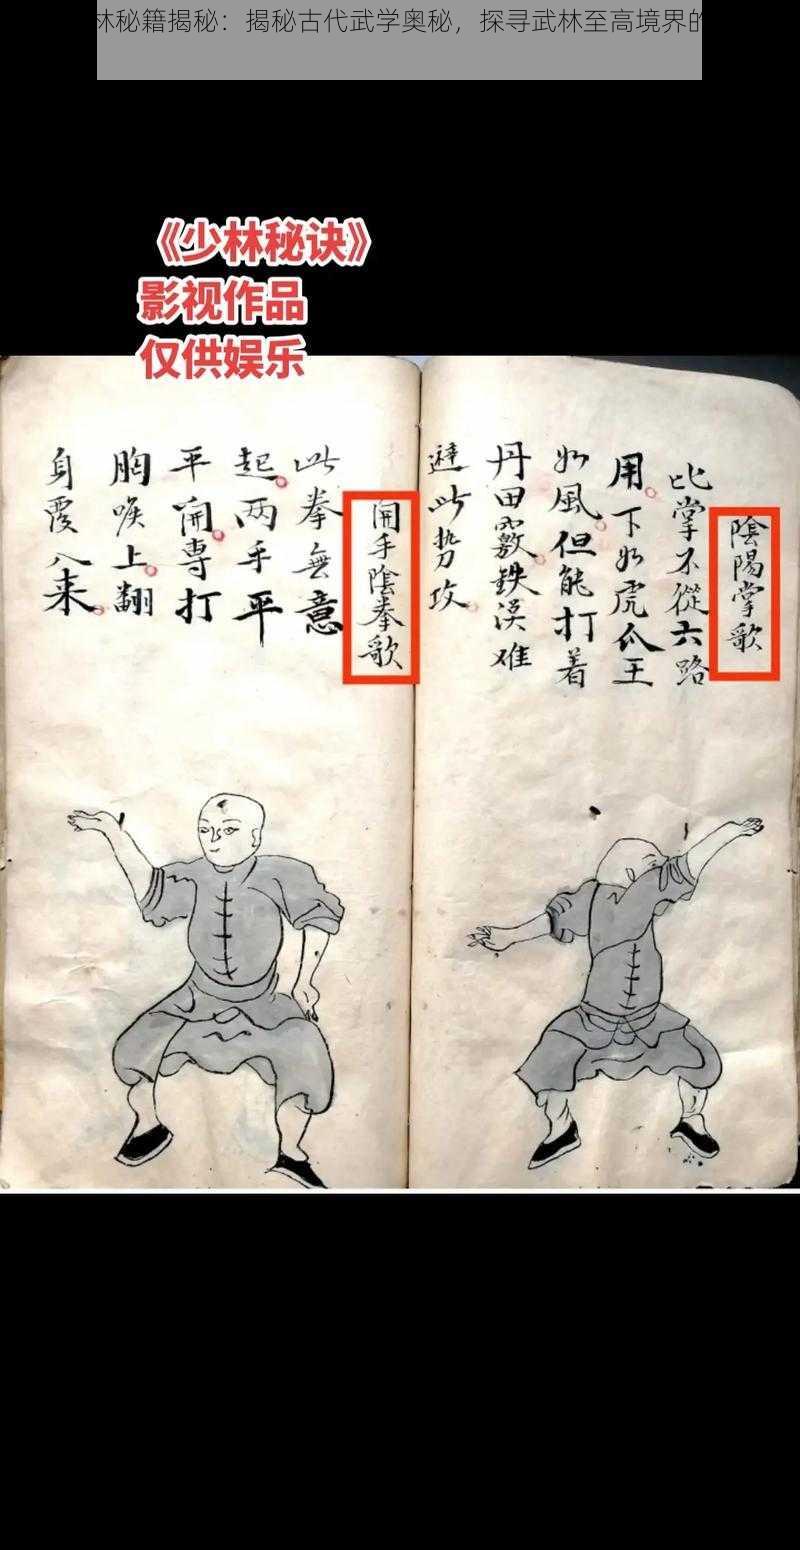 林秘籍揭秘：揭秘古代武学奥秘，探寻武林至高境界的
《少林秘诀》
影视作品
仅供娱乐
陰陽掌歌
此掌不從六路
用下如虎爪王
如風但能打着
丹田竅鉄漢难
避此势攻
開手陰拳歌
此拳無意
起两手平
平開專打
胸喉上翻
身覆入来